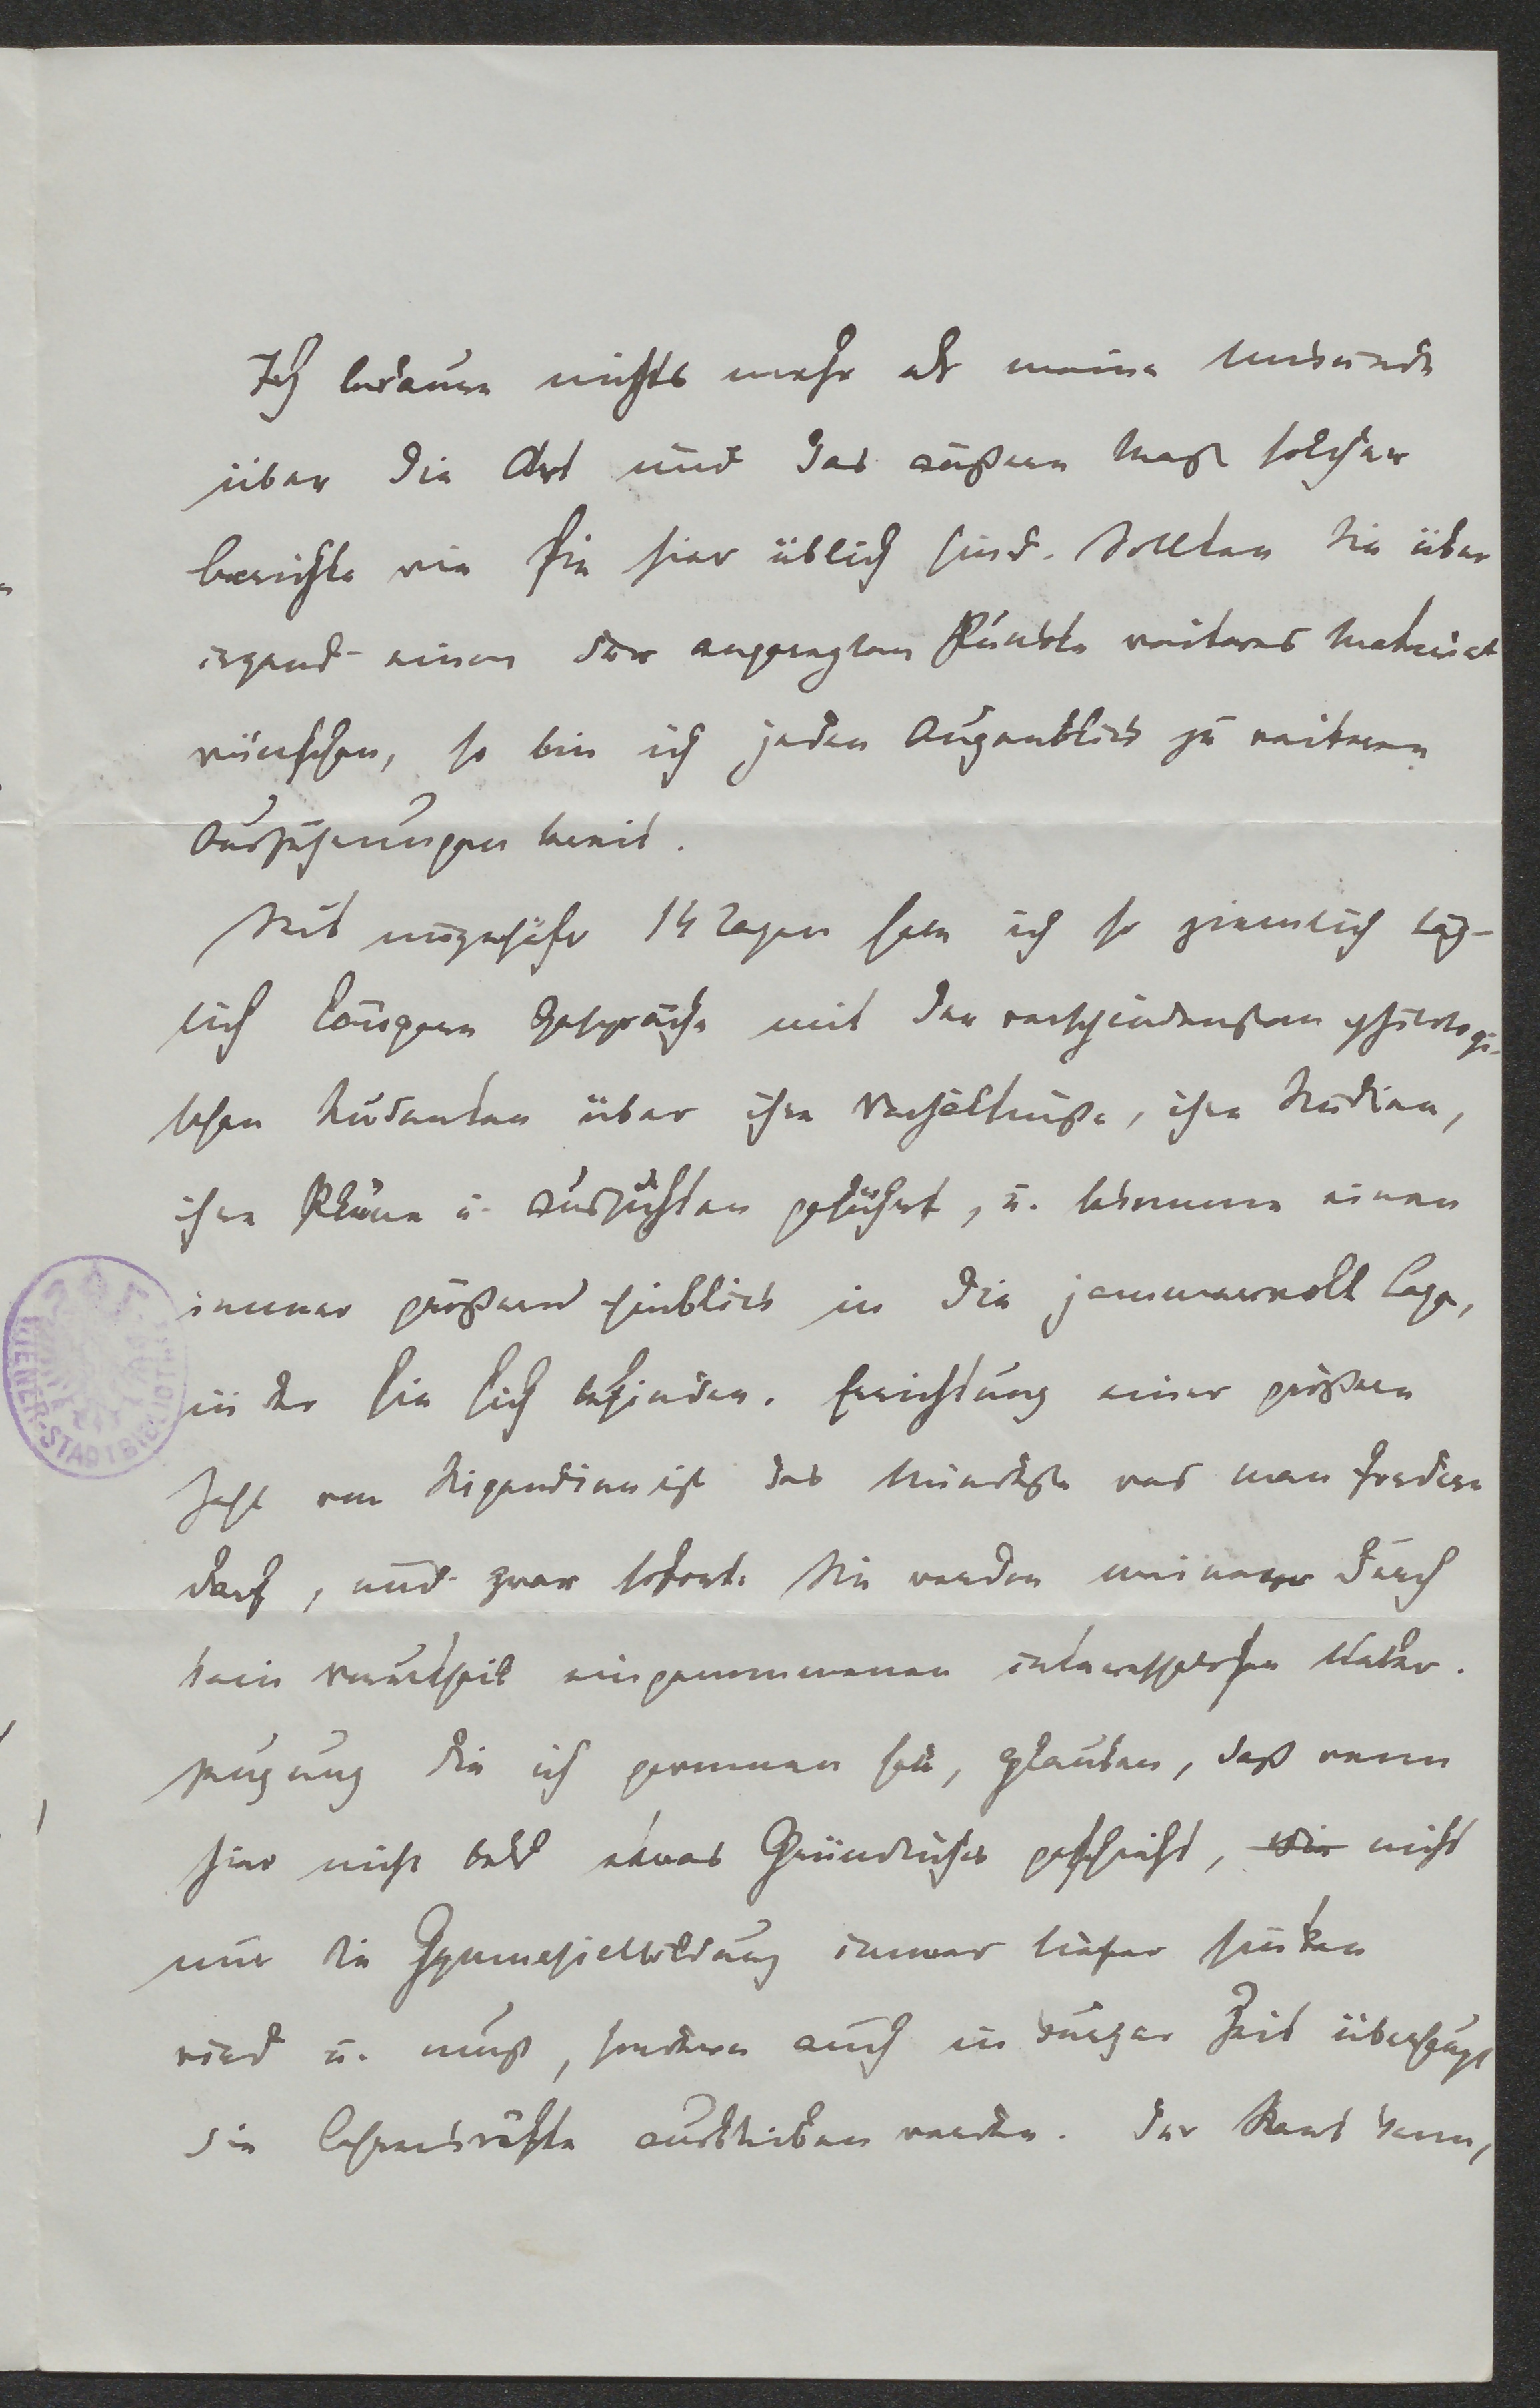 Ich bedaure nichts mehr als meine Unkunde
über die Art und das äußere Maß solcher
Berichte wie sie hier üblich sind. Sollten Sie über
irgend einen der angeregten Punkte weiteres Material
wünschen, so bin ich jeden Augenblick zu weiteren
Ausführungen bereit.
Seit ungefähr 14 Tagen habe ich so ziemlich täg-
lich längere Gespräche mit den verschiedensten philologi-
schen Studenten über ihre Verhältniße, ihre Studien,
ihre Pläne u. Aussichten geführt, u. bekomme einen
immer größeren Einblick in die jammervolle Lage,
in der sie sich befinden. Errichtung einer größern
Zahl von Stipendien ist das Mindeste was man fordern
darf, und zwar sofort. Sie werden meiner durch
kein Vorurtheil eingenommenen interesselosen Ueber-
zeugung die ich gewonnen habe, glauben, daß wenn
hier nicht bald etwas Gründliches geschieht, nicht
nur die Gymnasialbildung immer tiefer sinken
wird u. muß, sondern auch in kurzer Zeit überhaupt
die Lehramtskräfte ausbleiben werden. Der Staat kann,
WIENER-STADTBIBLIOTHEK